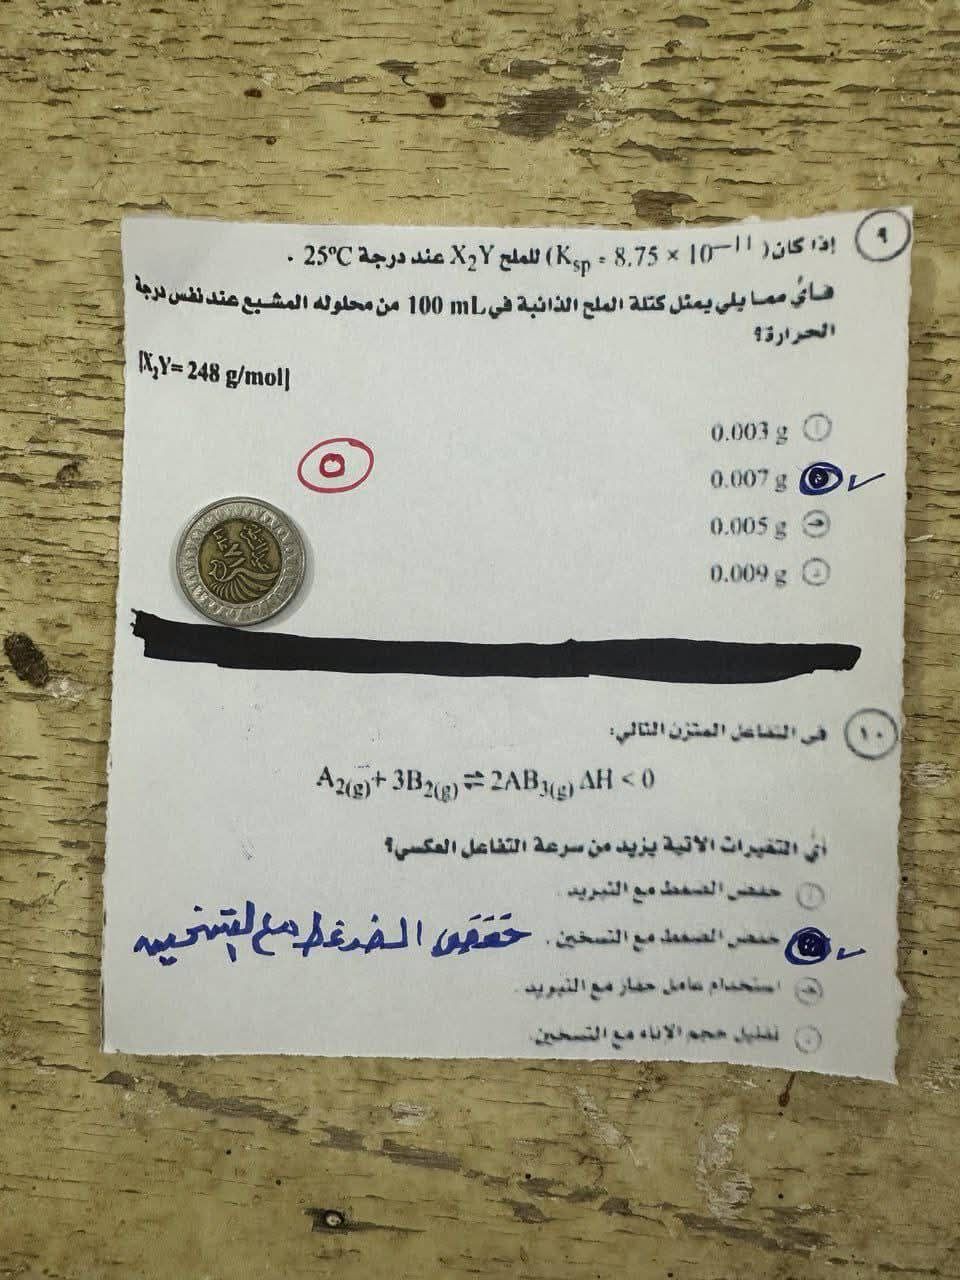 ٩
إذا كان (Ksp = 8.75 × 10⁻¹¹) للملح X₂Y عند درجة 25°C .
فأي مما يلي يمثل كتلة الملح الذائبة في 100 mL من محلوله المشبع عند نفس درجة
الحرارة؟
[X₂Y= 248 g/mol]
أ 0.003 g
0.007 g
جـ 0.005 g
د 0.009 g
١٠
في التفاعل المتزن التالي:
A₂(g) + 3B₂(g) ⇌ 2AB₃(g) ΔH < 0
أي التغيرات الآتية يزيد من سرعة التفاعل العكسي؟
أ خفض الضغط مع التبريد.
خفض الضغط مع التسخين. خفض الضغط مع التسخين
جـ استخدام عامل حفاز مع التبريد.
د تقليل حجم الإناء مع التسخين.